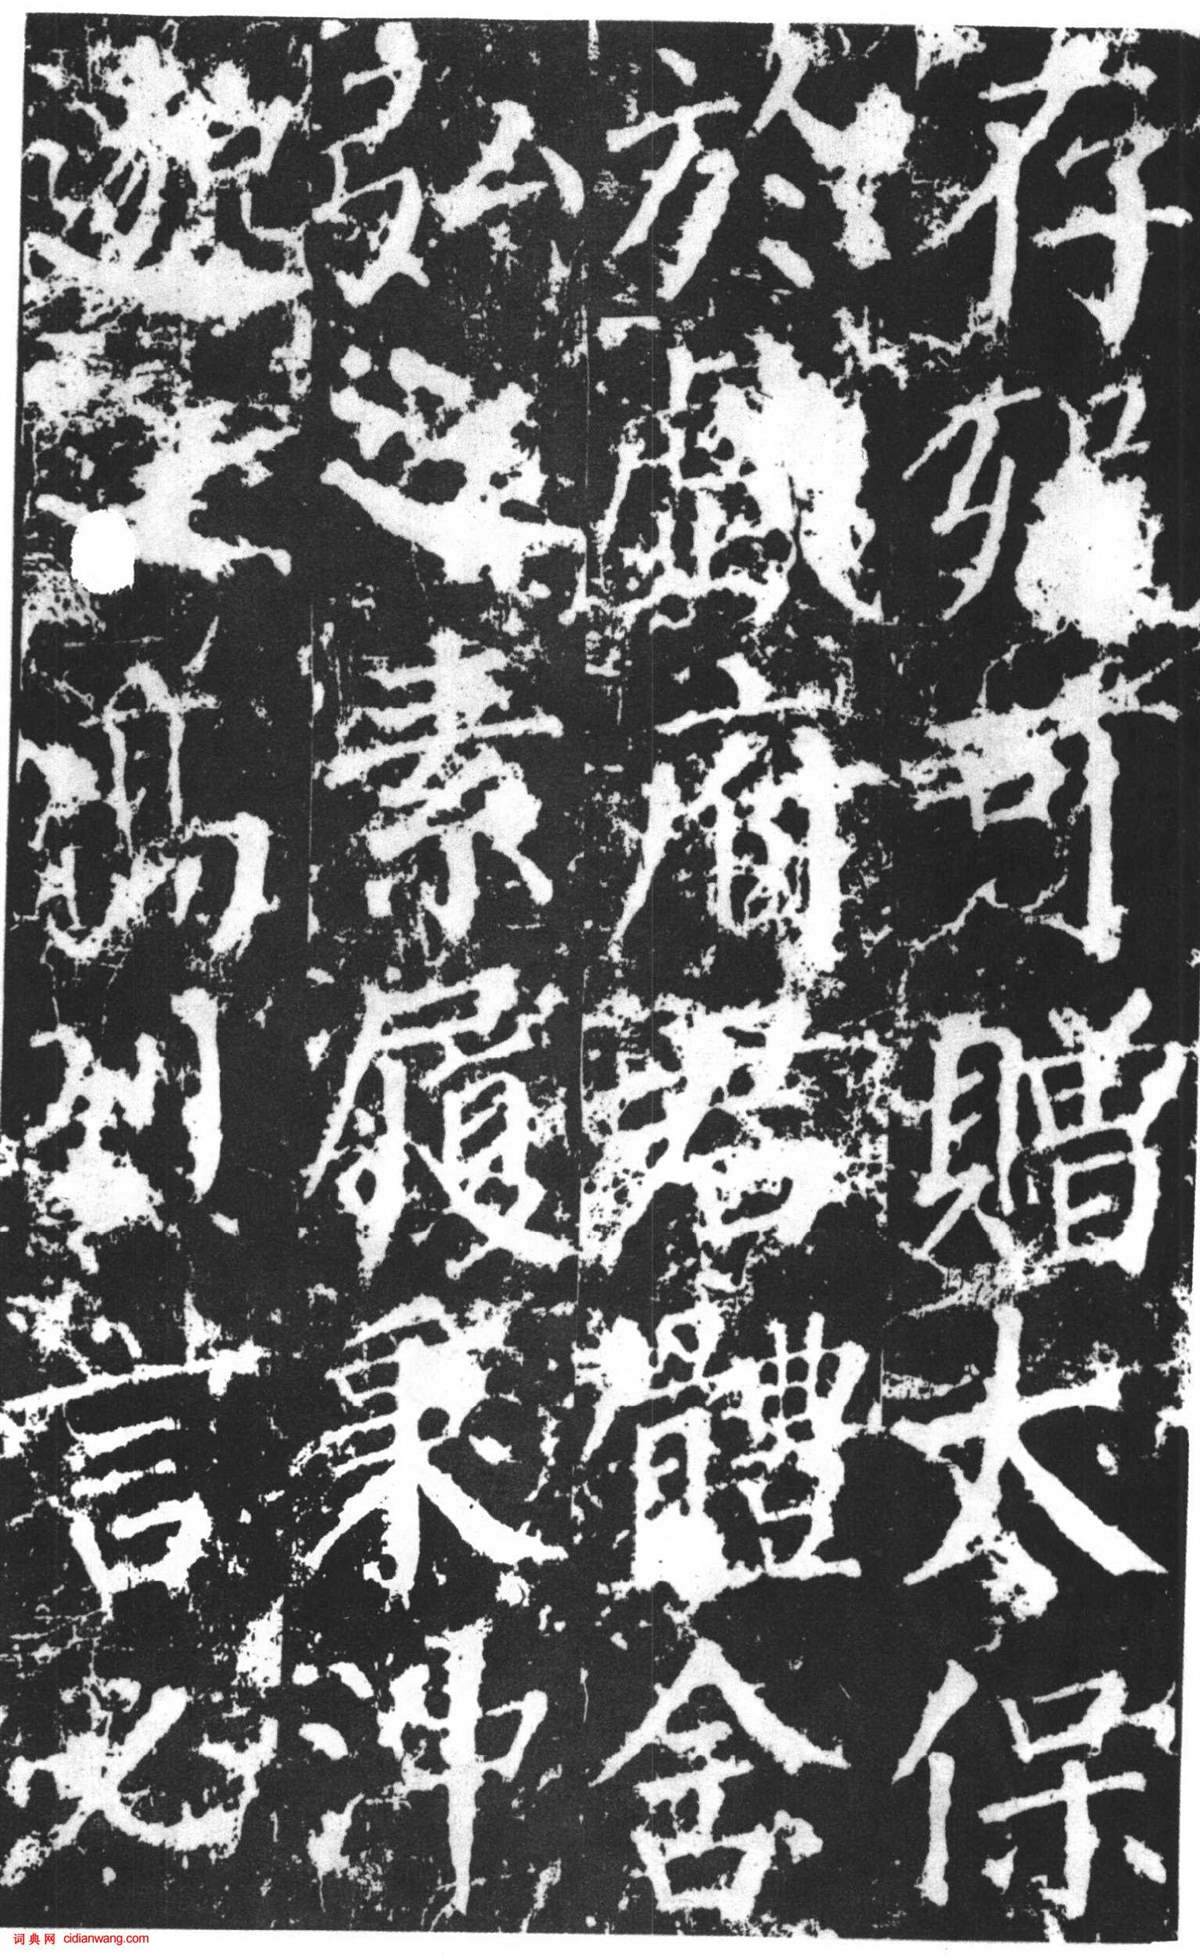 存歿可贈太保
於戲府君體含
弘之素履秉沖
邈之高烈言必
词典网 cidianwang.com